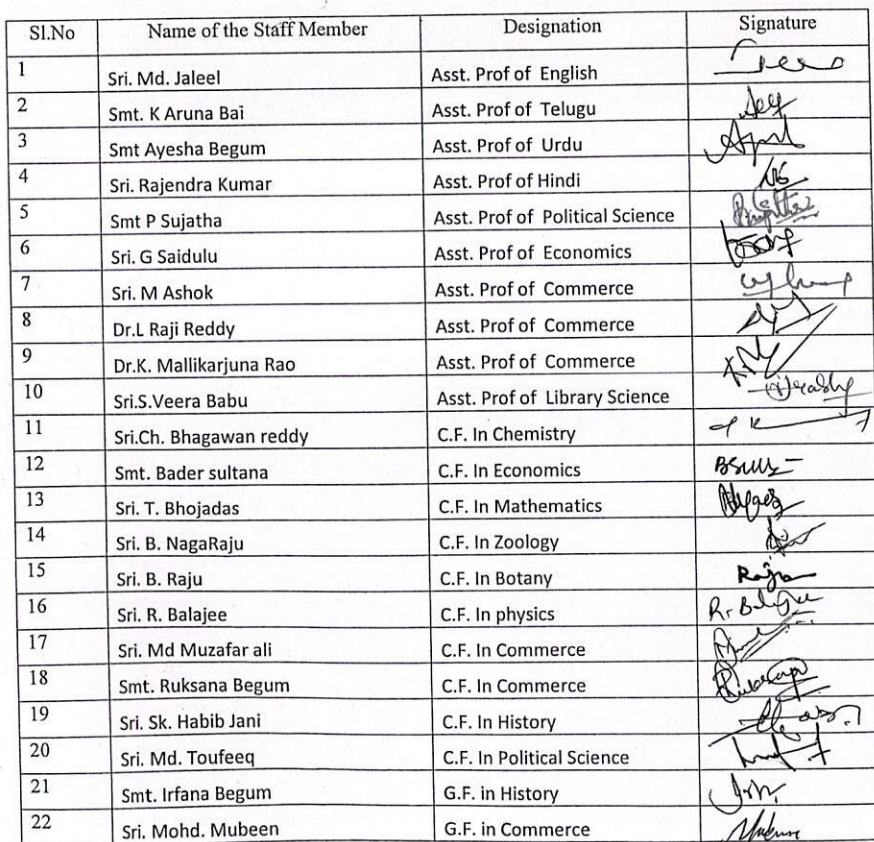 Sl.No Name of the Staff Member Designation Signature
1 Sri. Md. Jaleel Asst. Prof of English
2 Smt. K Aruna Bai Asst. Prof of Telugu
3 Smt Ayesha Begum Asst. Prof of Urdu
4 Sri. Rajendra Kumar Asst. Prof of Hindi
5 Smt P Sujatha Asst. Prof of Political Science
6 Sri. G Saidulu Asst. Prof of Economics
7 Sri. M Ashok Asst. Prof of Commerce
8 Dr.L Raji Reddy Asst. Prof of Commerce
9 Dr.K. Mallikarjuna Rao Asst. Prof of Commerce
10 Sri.S.Veera Babu Asst. Prof of Library Science
11 Sri.Ch. Bhagawan reddy C.F. In Chemistry
12 Smt. Bader sultana C.F. In Economics
13 Sri. T. Bhojadas C.F. In Mathematics
14 Sri. B. NagaRaju C.F. In Zoology
15 Sri. B. Raju C.F. In Botany Raju
16 Sri. R. Balajee C.F. In physics R. Balajee
17 Sri. Md Muzafar ali C.F. In Commerce
18 Smt. Ruksana Begum C.F. In Commerce
19 Sri. Sk. Habib Jani C.F. In History
20 Sri. Md. Toufeeq C.F. In Political Science
21 Smt. Irfana Begum G.F. in History
22 Sri. Mohd. Mubeen G.F. in Commerce